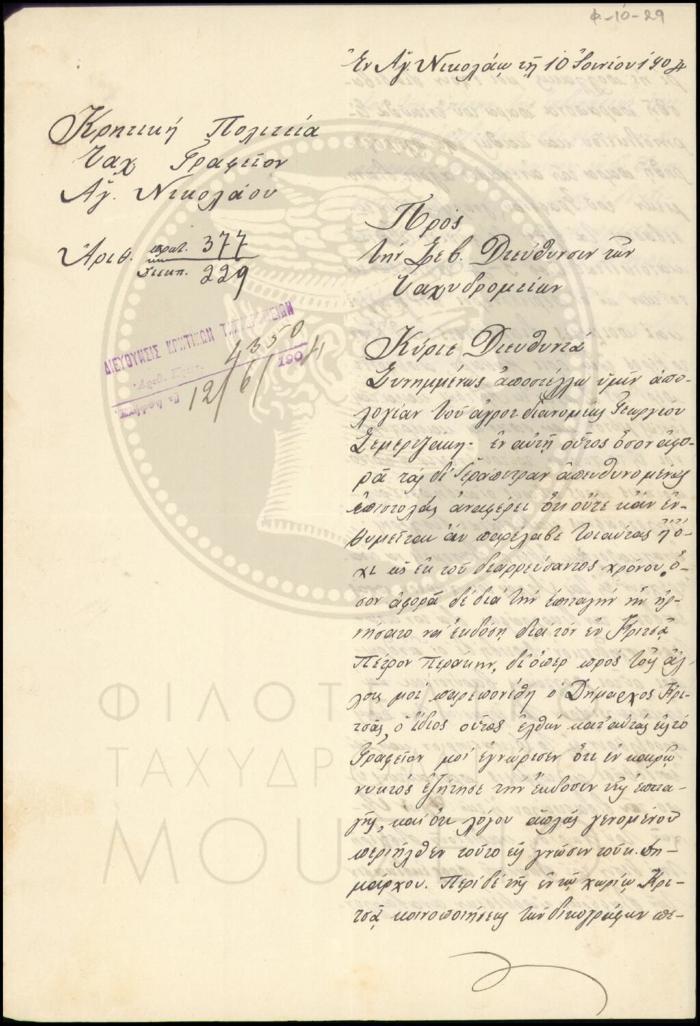 Φ-10-29
Ἐν Ἁγ. Νικολάῳ τῇ 10 Ἰουνίου 1904
Κρητική Πολιτεία
Ταχ Γραφεῖον
Ἁγ. Νικολάου
Ἀριθ. πρωτ. 377
διεκπ. 229
Πρὸς
τὴν Σεβ. Διεύθυνσιν τῶν
Ταχυδρομείων
ΔΙΕΥΘΥΝΣΙΣ ΚΡΗΤΙΚΩΝ ΤΑΧΥΔΡΟΜΕΙΩΝ
4350
12/6/1904
Κύριε Διευθυντά
Συνημμένως ἀποστέλλω ὑμῖν ἀπο-
λογίαν τοῦ ἀγροτ διανομέως Γεωργίου
Σεμεριζάκη. ἐν αὐτῇ οὗτος ὅσον ἀφο-
ρᾷ τὰς δι' Ἱεράπετραν ἀπευθυνομένας
ἐπιστολὰς ἀναφέρει ὅτι οὔτε κἂν ἐν-
θυμεῖται ἂν παρέλαβε τοιαύτας ἢ ὄ-
χι ὡς ἐκ τοῦ διαρρεύσαντος χρόνου, ὅ-
σον ἀφορᾷ δὲ διὰ τὴν ἐπιταγὴν ἣν ἠρ-
νήσατο νὰ ἐκδόσῃ διὰ τὸν ἐν Κριτσᾷ
Πέτρον Περάκην, δι' ὅπερ πρὸς τοῖς ἄλ-
λοις μοὶ παρεπονέθη ὁ Δήμαρχος Κρι-
τσᾶς, ὁ ἴδιος οὗτος ἐλθὼν κατ' αὐτὰς εἰς τὸ
Γραφεῖον μοὶ ἐγνώρισεν ὅτι ἐν καιρῷ
νυκτὸς ἐζήτησε τὴν ἔκδοσιν τῆς ἐπιτα-
γῆς, καὶ ὅτι λόγου ἁπλῶς γενομένου
περιῆλθεν τοῦτο εἰς γνῶσιν τοῦ κ. Δη-
μάρχου. Περὶ δὲ τῆς ἐν τῷ χωρίῳ Κρι-
τσᾷ κοινοποιήσεως τῶν δικογράφων πε-
ΦΙΛΟΤ
ΤΑΧΥΔΡ
ΜΟΥ